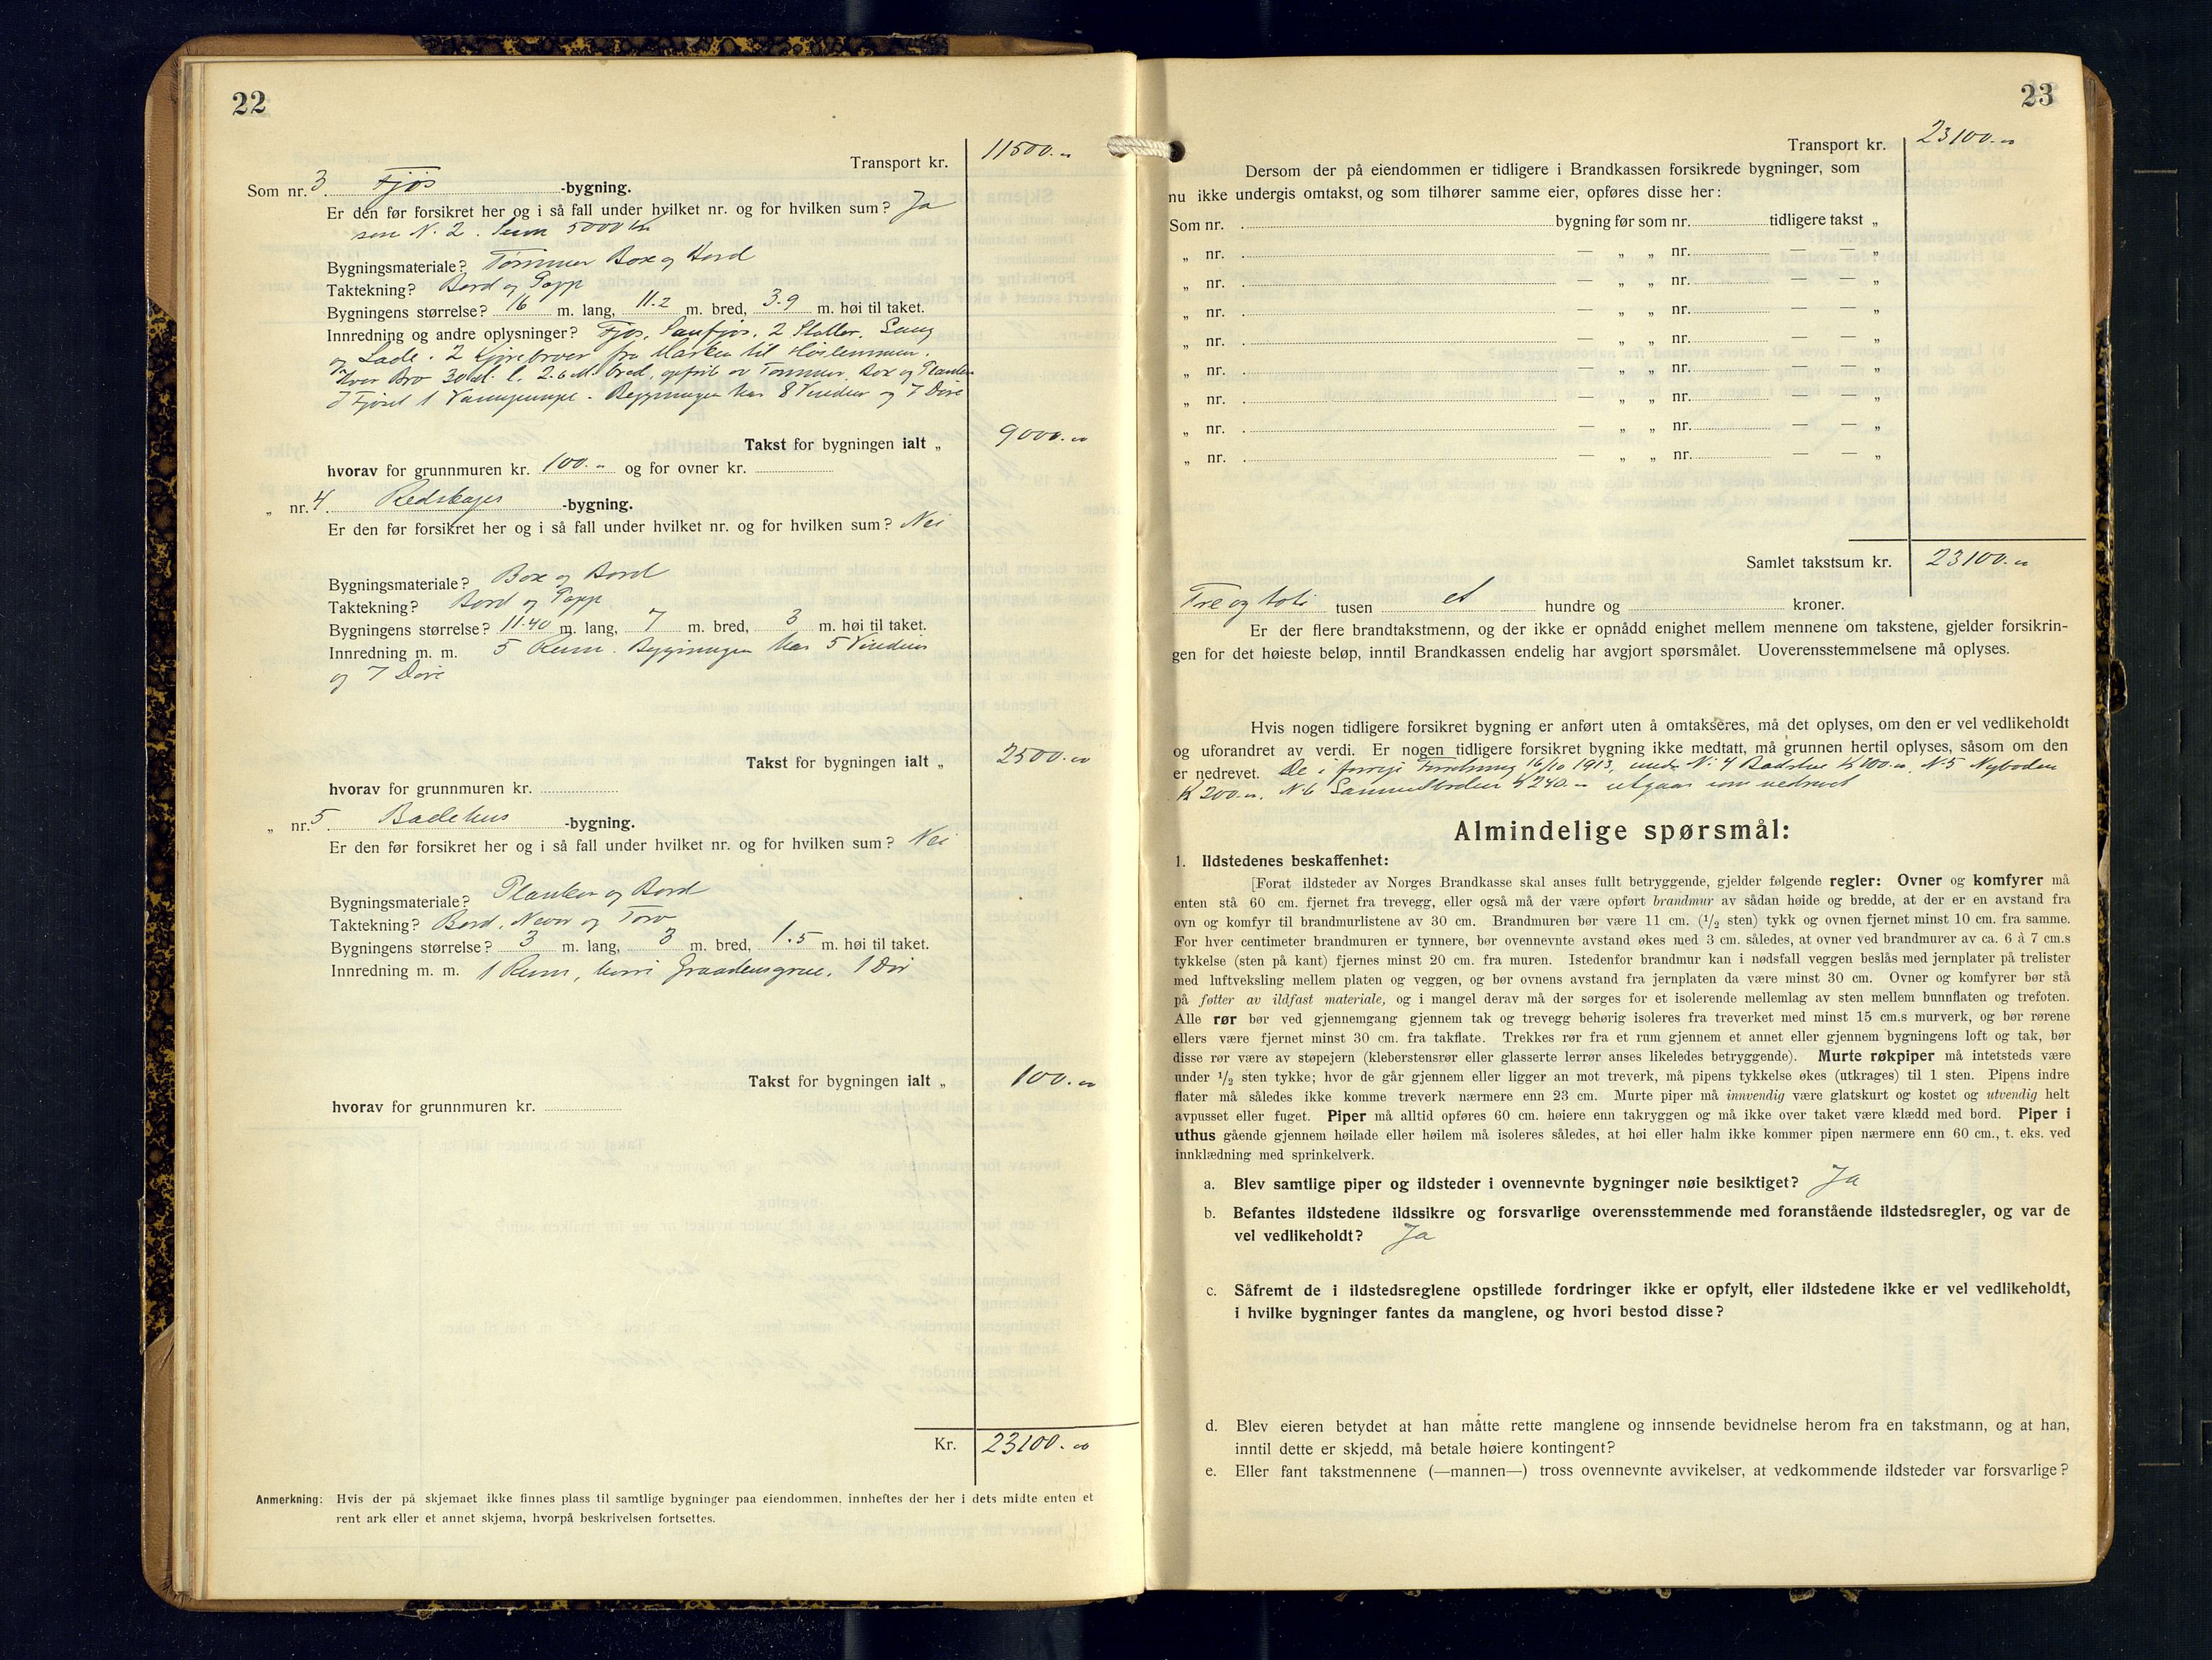 22
Transport kr. 11500.-
Som nr. 3 Fjøs -bygning.
Er den før forsikret her og i så fall under hvilket nr. og for hvilken sum? Ja
som N. 2. Sum 5000 kr
Bygningsmateriale? Tømmer Box og Bord
Taktekning? Bord og Papp
Bygningens størrelse? 16 m. lang, 11.2 m. bred, 3.9 m. høi til taket.
Innredning og andre oplysninger? Fjøs, Saufjøs, 2 Staller,
og Lade. 2 Kjørebroer fra Marken til Høilemmen.
Hver Bro 30 M. l. 2.6 M. bred, opført av Tømmer, Box og Planker
I Fjøset 1 Vannpumpe. Bygningen har 8 Vinduer og 7 Døre
Takst for bygningen ialt „ 9000.00
hvorav for grunnmuren kr. 100.- og for ovner kr.
„ nr. 4 Redskaps -bygning.
Er den før forsikret her og i så fall under hvilket nr. og for hvilken sum? Nei
Bygningsmateriale? Box og Bord
Taktekning? Bord og Papp
Bygningens størrelse? 11.40 m. lang, 7 m. bred, 3 m. høi til taket.
Innredning m. m. 5 Rum. Bygningen har 5 Vinduer
og 7 Døre
Takst for bygningen ialt „ 2500.00
hvorav for grunnmuren kr.
„ nr. 5 Badehus -bygning.
Er den før forsikret her og i så fall under hvilket nr. og for hvilken sum? Nei
Bygningsmateriale? Planker og Bord
Taktekning? Bord, Never og Torv
Bygningens størrelse? 3 m. lang, 3 m. bred, 1.5 m. høi til taket.
Innredning m. m. 1 Rum, hvori 1 Dør
Takst for bygningen ialt „ 100.00
hvorav for grunnmuren kr.
Kr. 23100.00
Anmerkning: Hvis der på skjemaet ikke finnes plass til samtlige bygninger paa eiendommen, innheftes der her i dets midte enten et
rent ark eller et annet skjema, hvorpå beskrivelsen fortsettes.
23
Transport kr. 23100.00
Dersom der på eiendommen er tidligere i Brandkassen forsikrede bygninger, som
nu ikke undergis omtakst, og som tilhører samme eier, opføres disse her:
Som nr. bygning før som nr. tidligere takst „
„ nr. — „ „ nr. — — „
„ nr. — „ „ nr. — — „
„ nr. — „ „ nr. — — „
„ nr. — „ „ nr. — — „
„ nr. — „ „ nr. — — „
„ nr. — „ „ nr. — — „
„ nr. — „ „ nr. — — „
„ nr. — „ „ nr. — — „
Samlet takstsum kr. 23100.00
Tre og tyve tusen et hundre og kroner.
Er der flere brandtakstmenn, og der ikke er opnådd enighet mellem mennene om takstene, gjelder forsikrin-
gen for det høieste beløp, inntil Brandkassen endelig har avgjort spørsmålet. Uoverensstemmelsene må oplyses.
Hvis nogen tidligere forsikret bygning er anført uten å omtakseres, må det oplyses, om den er vel vedlikeholdt
og uforandret av verdi. Er nogen tidligere forsikret bygning ikke medtatt, må grunnen hertil oplyses, såsom om den
er nedrevet. De i forrige Forretning 16/10 1913, under N: 4 Badstue Kr 100.00, N. 5 Nyboden
Kr 200.00. N. 6 Kr 240.- utgaar som nedrevet
Almindelige spørsmål:
1. Ildstedenes beskaffenhet:
[Forat ildsteder av Norges Brandkasse skal anses fullt betryggende, gjelder følgende regler: Ovner og komfyrer må
enten stå 60 cm. fjernet fra trevegg, eller også må der være opført brandmur av sådan høide og bredde, at der er en avstand fra
ovn og komfyr til brandmurlistene av 30 cm. Brandmuren bør være 11 cm. (1/2 sten) tykk og ovnen fjernet minst 10 cm. fra samme.
For hver centimeter brandmuren er tynnere, bør ovennevnte avstand økes med 3 cm. således, at ovner ved brandmurer av ca. 6 à 7 cm.s
tykkelse (sten på kant) fjernes minst 20 cm. fra muren. Istedenfor brandmur kan i nødsfall veggen beslås med jernplater på trelister
med luftveksling mellem platen og veggen, og bør ovnens avstand fra jernplaten da være minst 30 cm. Ovner og komfyrer bør stå
på føtter av ildfast materiale, og i mangel derav må der sørges for et isolerende mellemlag av sten mellem bunnflaten og trefoten.
Alle rør bør ved gjennemgang gjennem tak og trevegg behørig isoleres fra treverket med minst 15 cm.s murverk, og bør rørene
ellers være fjernet minst 30 cm. fra takflate. Trekkes rør fra et rum gjennem et annet eller gjennem bygningens loft og tak, bør
disse rør være av støpejern (kleberstensrør eller glasserte lerrør anses likeledes betryggende). Murte røkpiper må intetsteds være
under 1/2 sten tykke; hvor de går gjennem eller ligger an mot treverk, må pipens tykkelse økes (utkrages) til 1 sten. Pipens indre
flater må således ikke komme treverk nærmere enn 23 cm. Murte piper må innvendig være glatskurt og kostet og utvendig helt
avpusset eller fuget. Piper må alltid opføres 60 cm. høiere enn takryggen og må ikke over taket være klædd med bord. Piper i
uthus gående gjennem høilade eller høilem må isoleres således, at høi eller halm ikke kommer pipen nærmere enn 60 cm., t. eks. ved
innklædning med sprinkelverk.
a. Blev samtlige piper og ildsteder i ovennevnte bygninger nøie besiktiget? Ja
b. Befantes ildstedene ildssikre og forsvarlige overensstemmende med foranstående ildstedsregler, og var de
vel vedlikeholdt? Ja
c. Såfremt de i ildstedsreglene opstillede fordringer ikke er opfylt, eller ildstedene ikke er vel vedlikeholdt,
i hvilke bygninger fantes da manglene, og hvori bestod disse?
d. Blev eieren betydet at han måtte rette manglene og innsende bevidnelse herom fra en takstmann, og at han,
inntil dette er skjedd, må betale høiere kontingent?
e. Eller fant takstmennene (—mannen—) tross ovennevnte avvikelser, at vedkommende ildsteder var forsvarlige?